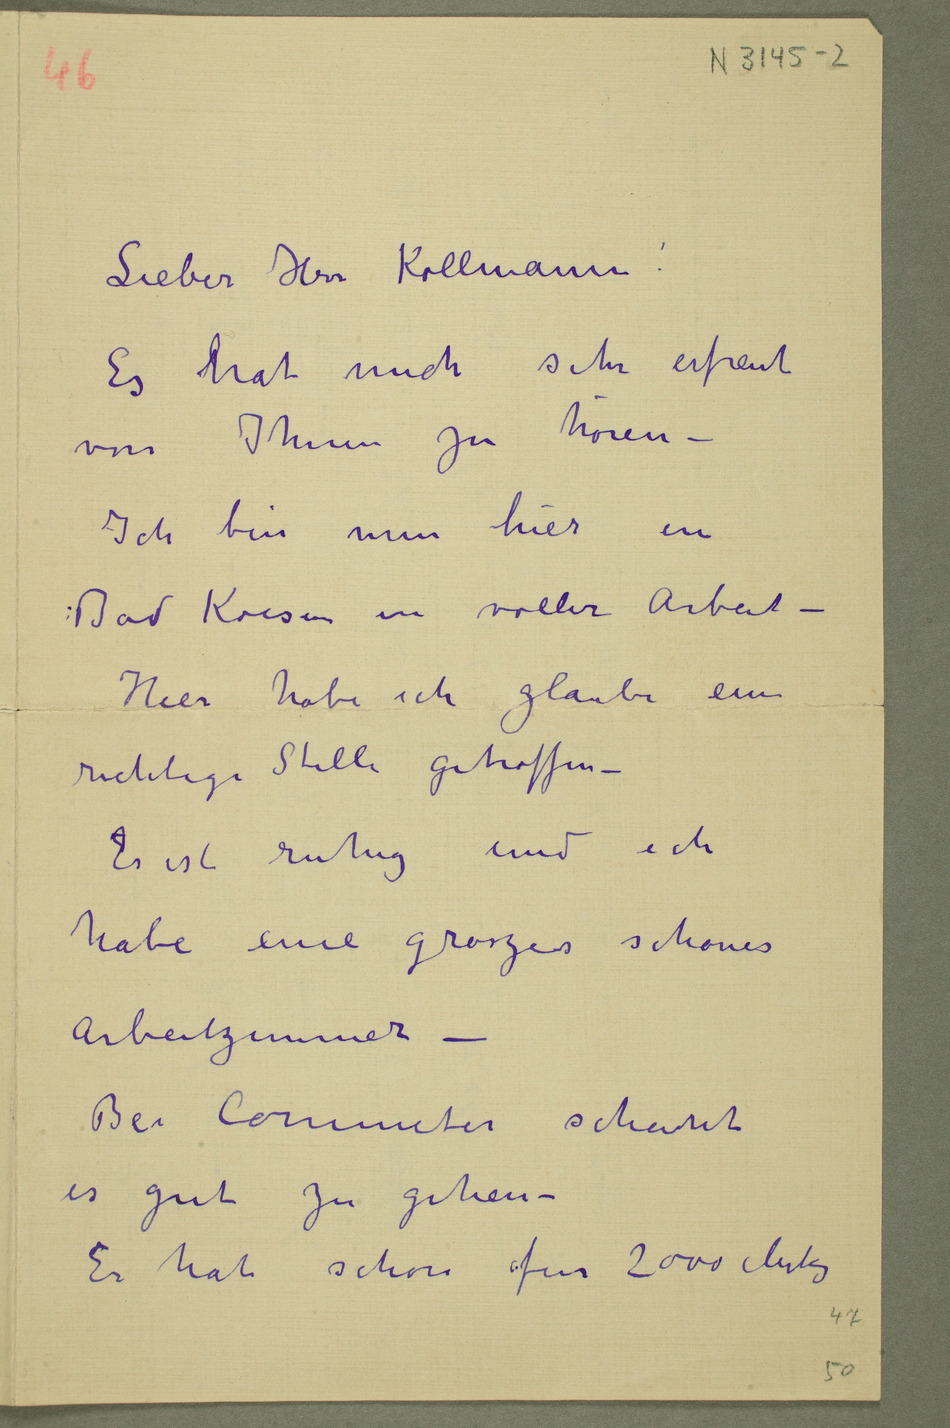 46
N 3145-2
Lieber Herr Kollmann!
Es hat mich sehr erfreut
von Ihnen zu hören –
Ich bin nun hier in
Bad Koesen in voller Arbeit –
Hier habe ich glaube eine
richtige Stelle getroffen –
Es ist ruhig und ich
habe eine groszes schones
Arbeitzimmer –
Bei Commeter scheint
es gut zu gehen –
Er hat schon fur 2000 Mk
47
50